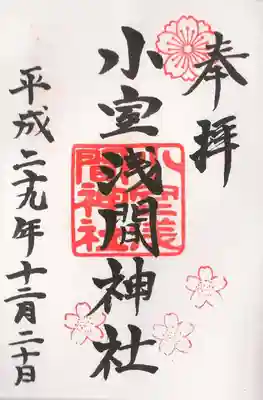 奉拝
小室浅間神社
平成二十九年十二月二十日
小室浅間神社